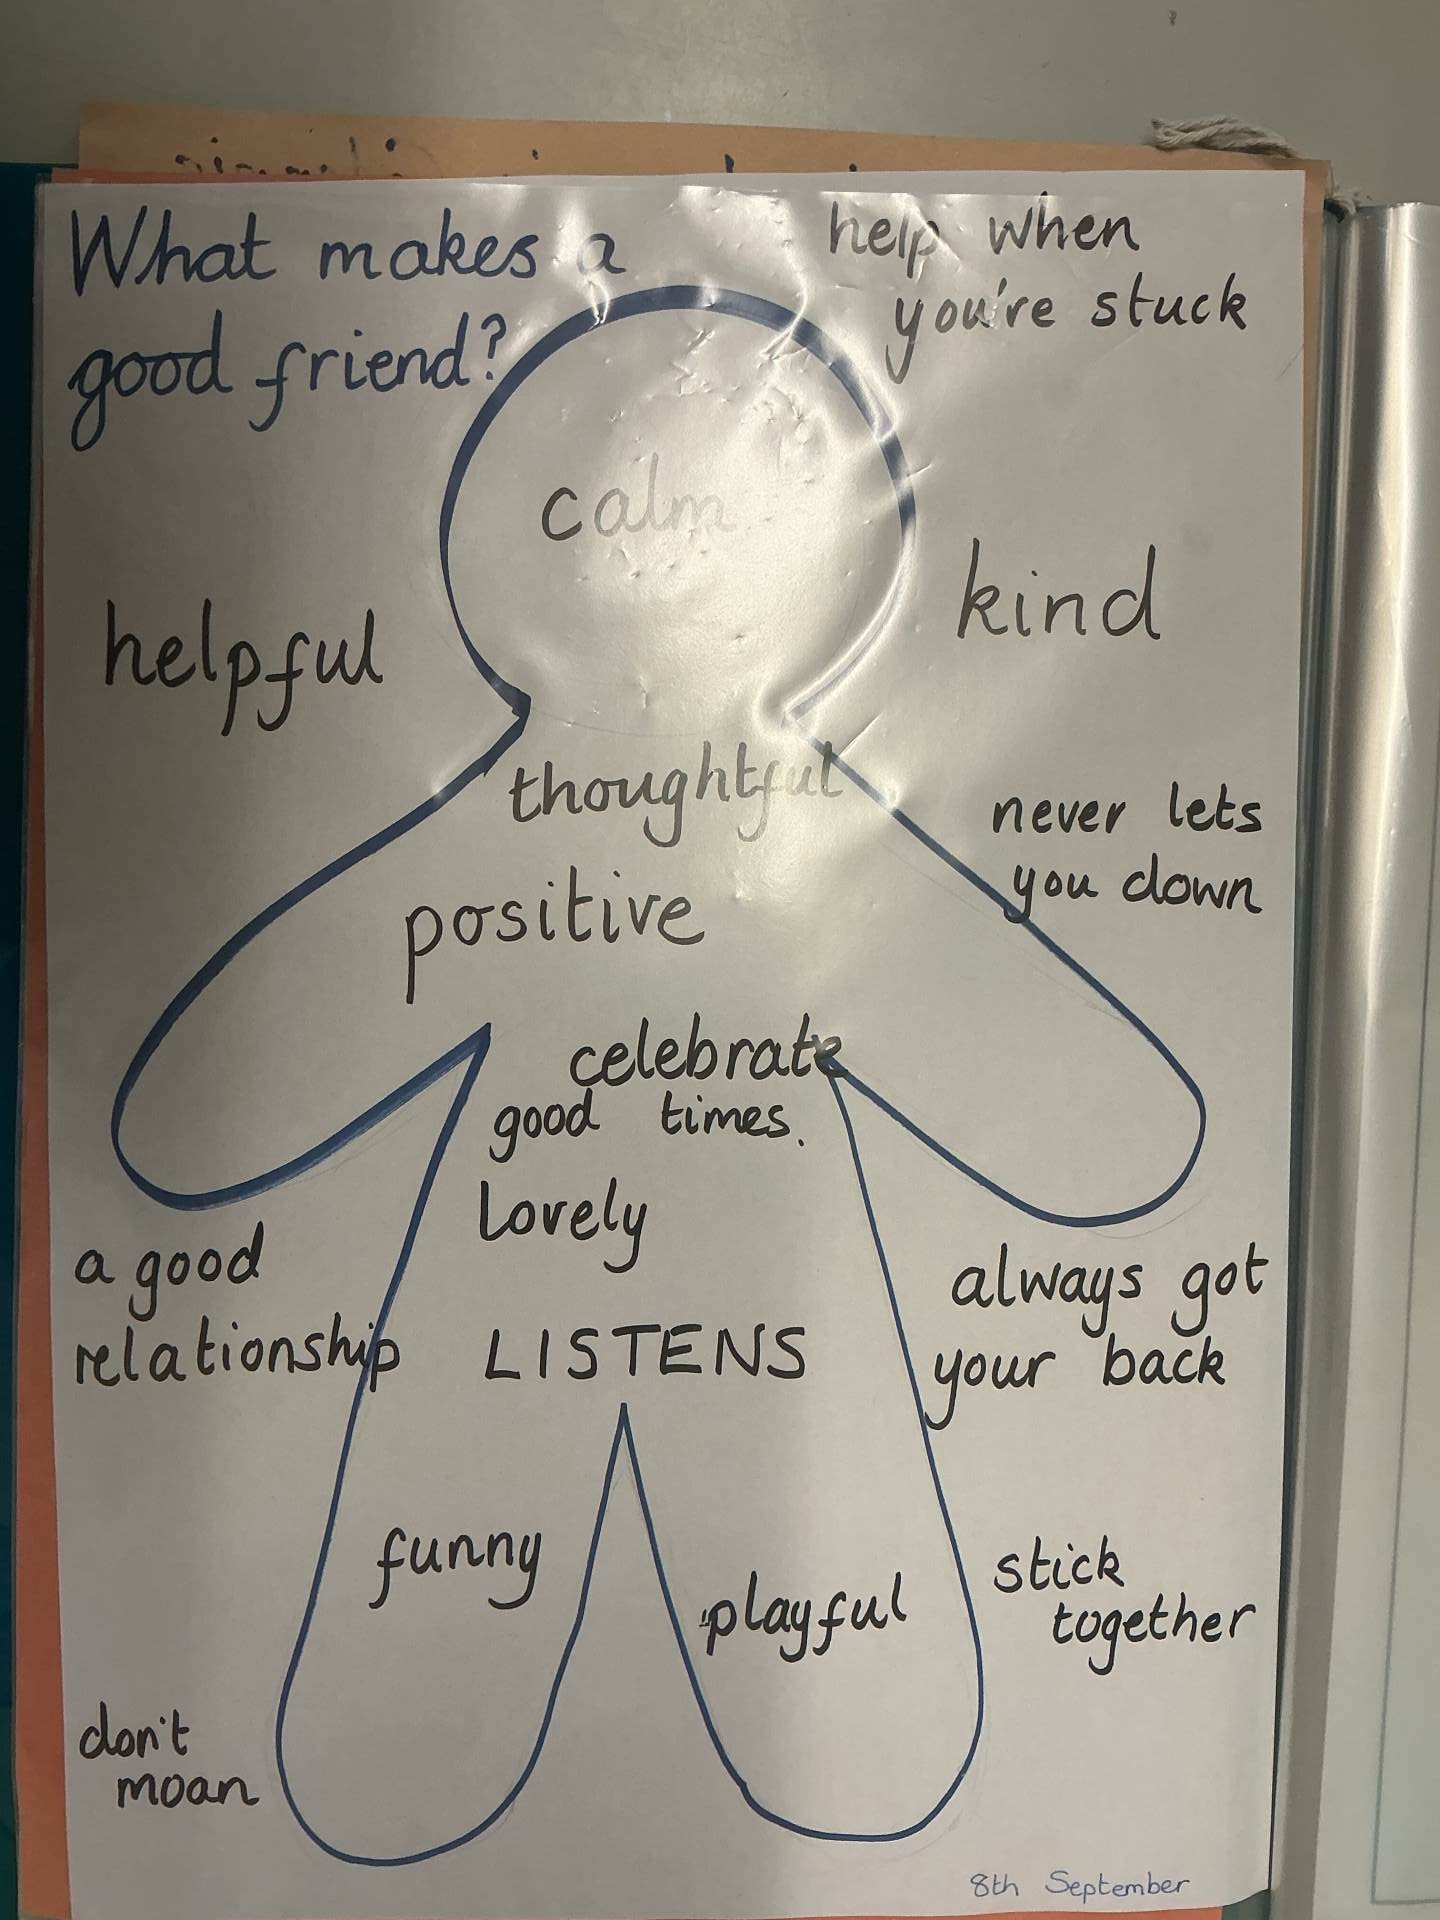 What makes a
good friend?
help when
you're stuck
calm
helpful
kind
thoughtful
never lets
you down
positive
celebrate
good times.
lovely
a good
relationship
LISTENS
always got
your back
funny
playful
stick
together
don't
moan
8th September